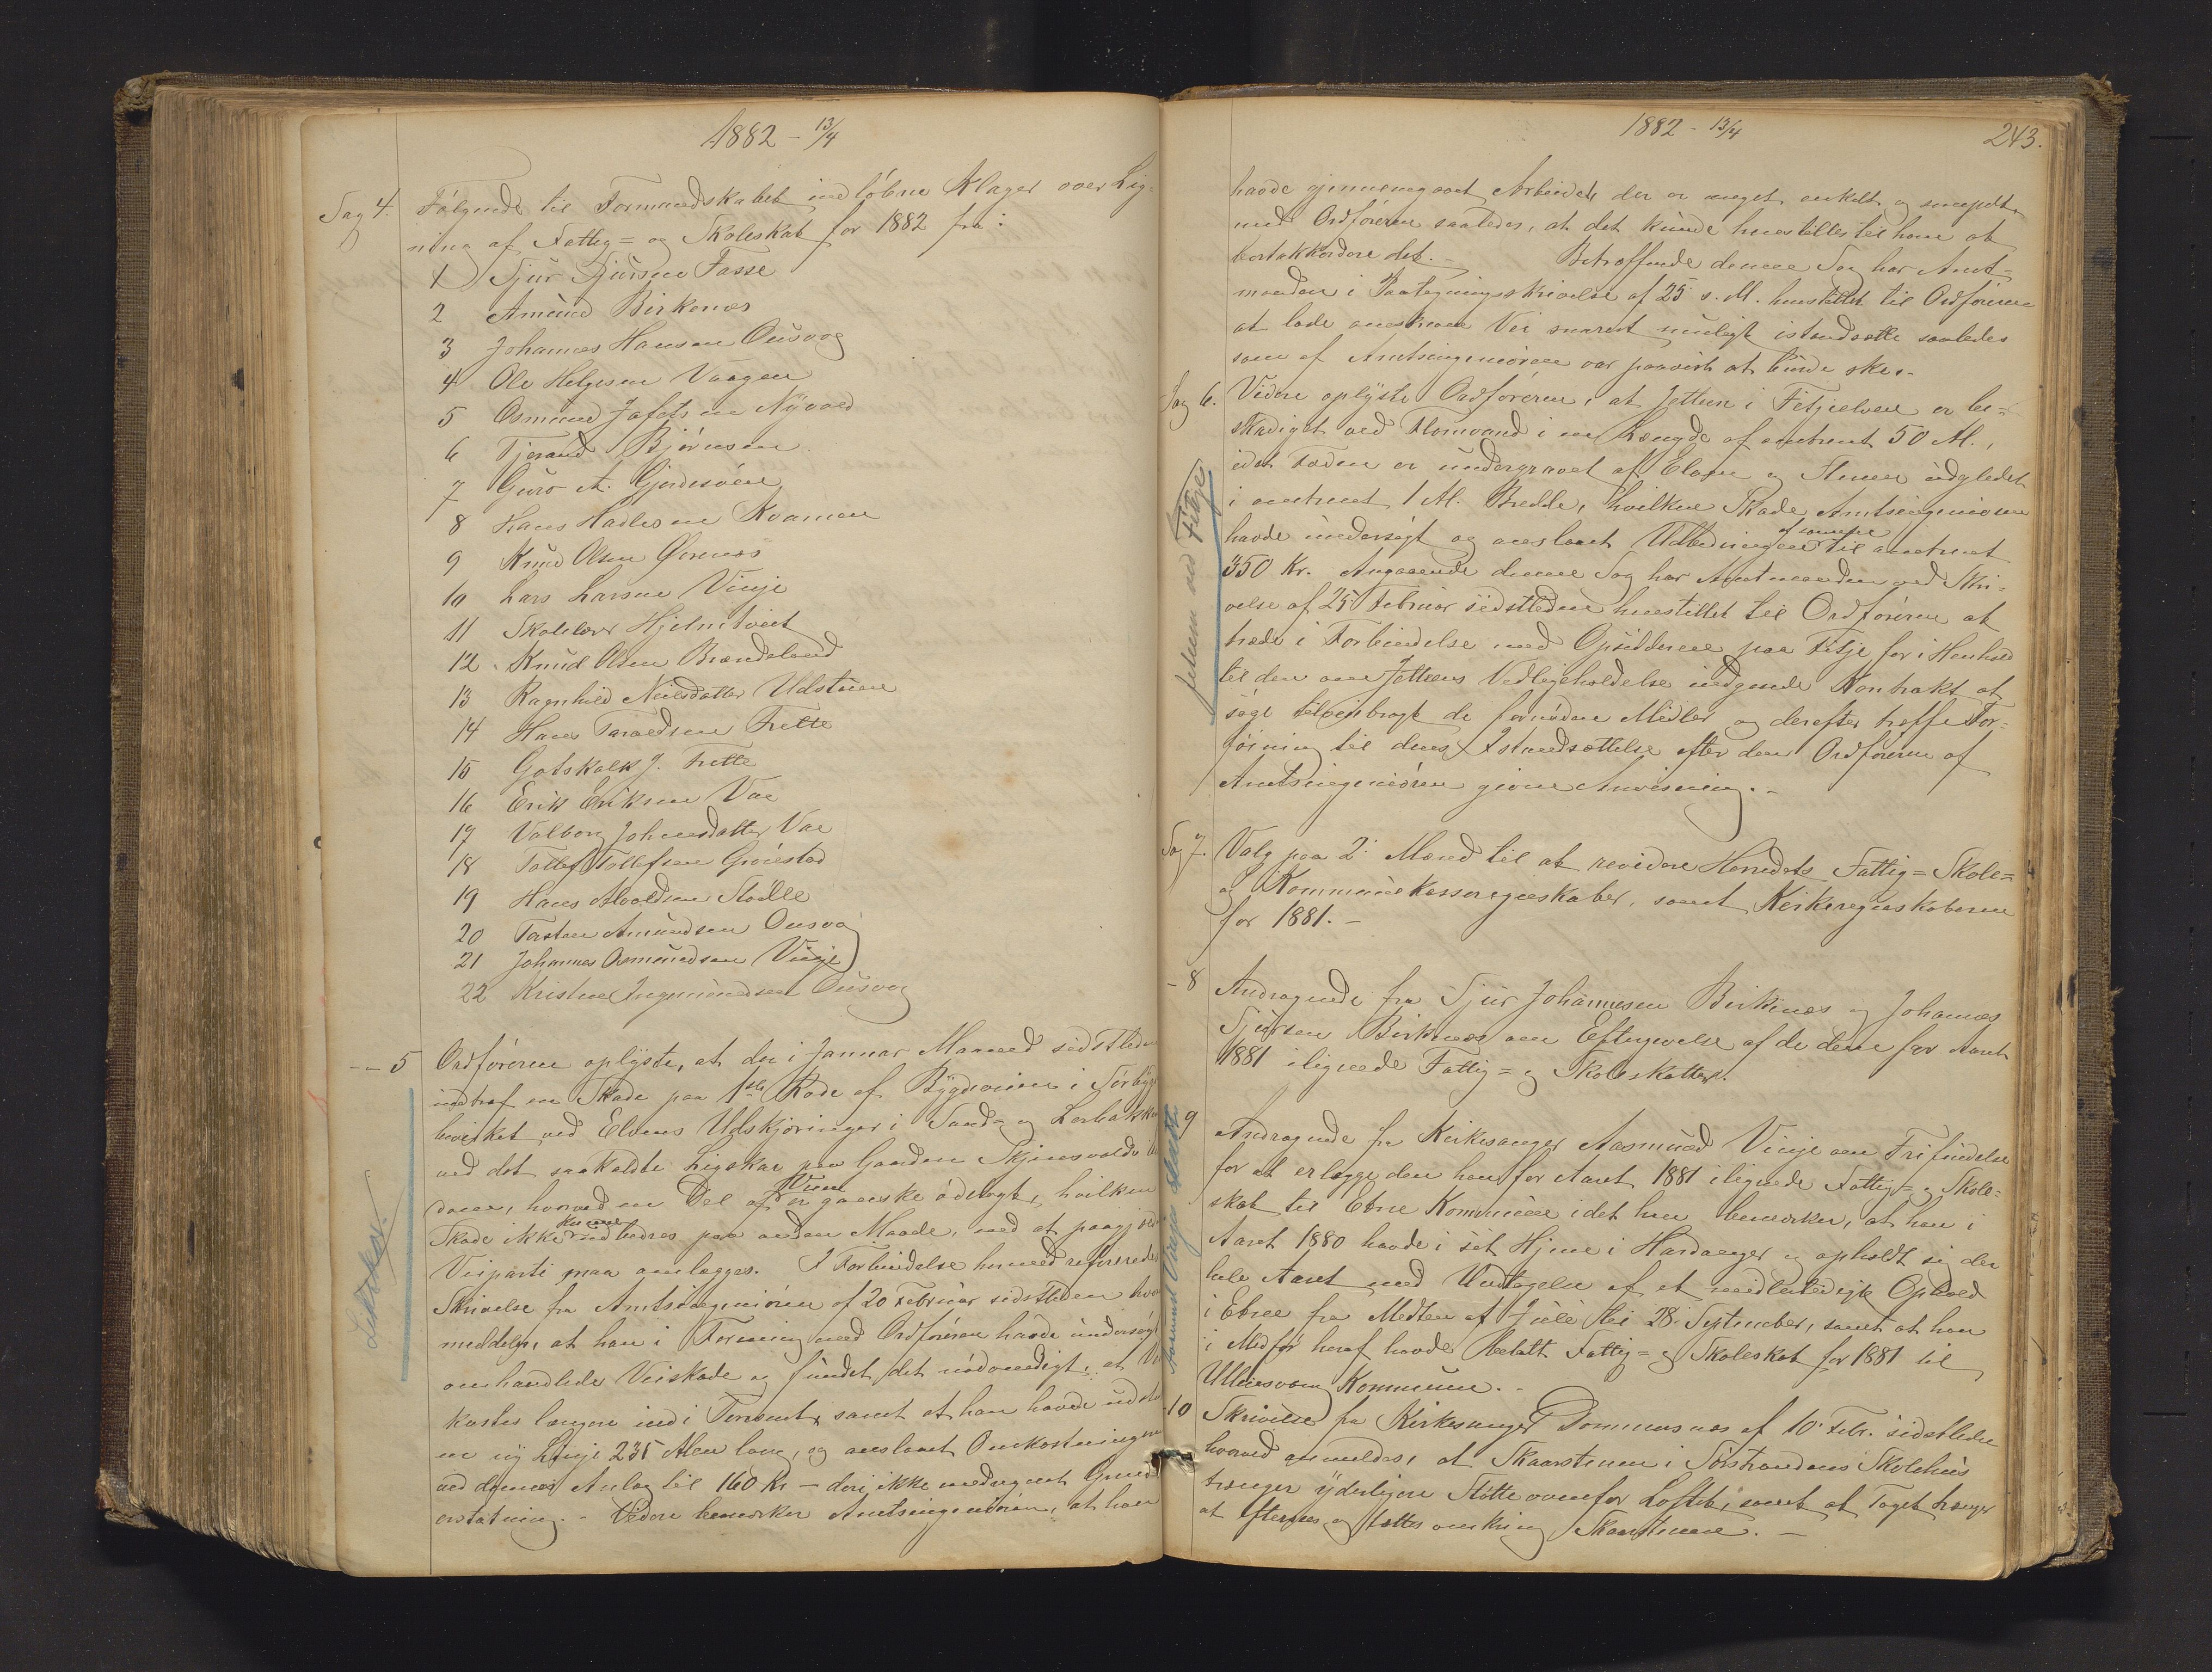 1882 - 13/4
Sag 4. Følgende til Formandskabet indløbne Klager over Lig-
ning af Fattig= og Skoleskat for 1882 fra:
1 Sjur Sjursen Fasse
2 Amund Birkenes
3 Johannes Hansen Ousvog
4 Ole Helgesen Vaagen
5 Osmund Jafetsen Nyvold
6 Tjerand Bjørnsen
7 Guro A. Gjerdesøen
8 Hans Hadlesen Kvamen
9 Knud Olsen Ørenes
10 Lars Larsen Vinje
11 Skolelærer Hjelmtveit
12 Knud Olsen Brendeland
13 Ragnhild Neilsdatter Udstuen
14 Hans Taraldsen Frette
15 Gotskalk J. Frette
16 Erik Eriksen Vae
17 Valborg Johnsdatter Vae
18 Tollef Tollefsen Grønstad
19 Hans Alvoldsen Stølle
20 Torsten Amundsen Ousvog
21 Johannes Osmundsen Vinje
22 Kristen Ingmundsen Ousvog
-"- 5 Ordføreren oplyste, at der i Januar Maaned sidstleden
indtraf en Skade paa 1ste Rode af Bygdeveien i Sørbyg
bevirket ved Elvens Udskjæringer i Sand= og Lerbakken
ved det saakaldte Ligskar paa Gaarden Skjensvolds
hvorved en Del af Veien er ganske ødelagt, hvilken
Skade ikke kunne udbedres paa anden Maade, end at paagjæld
Veiparti maa omlægges. I Forbindelse hermed refereredes
Skrivelse fra Amtsingeniøren af 20 Februar sidstleden hvor
meddeles, at han i Forening med Ordføreren havde undersøgt
omhandlede Veiskade og fundet det nødvendigt, at Vei
kastes længere ind i Terrænet, samt at han havde udstu
en ny Linje 235 Alen lang, og anslaaet Omkostningerne
ved dennes Anlæg til 160 Kr - deri ikke medregnet Grund
erstatning. - Videre bemærker Amtsingeniøren, at han
1882 - 13/4
243.
havde gjennemgaaet Arbeidet, der er meget enkelt og
med Ordføreren saaledes, at det kunde henstilles til ham at
bortakkordere det. - Betræffende denne Sag har Amt-
manden i Paategningsskrivelse af 25 s. M. henstillet til Ordføreren
at lade omskrevne Vei snarest muligt istandsætte saaledes
som af Amtsingeniøren var paavist at burde ske. -
Sag 6. Videre oplyste Ordføreren, at Jetteen i Fitjeelven er be=
skadiget ved Flomvand i en Længde af omtrent 50 M.,
idet Foden er undergravet af Elven og Stenen udgledet
i omtrent 1 M. Bredde, hvilken Skade Amtsingeniøren
havde undersøgt og anslaaet Udbedringen af samme til omtrent
350 Kr. Angaaende denne Sag har Amtmanden ved Skri-
velse af 25 Februar sidstleden henstillet til Ordføreren at
træde i Forbindelse med Opsidderne paa Fitje for i Henhold
til den om Jetteens Vedligeholdelse indgaaede Kontrakt at
søge tilveiebragt de fornødne Midler og derefter træffe For-
føining til dens Istandsættelse efter den Ordføreren af
Amtsingeniøren givne Anvisning. -
Sag 7. Valg paa 2 Mænd til at revidere Herredets Fattig= Skole=
og Kommunekasseregneskaber, samt Kirkeregnskaberne
for 1881. -
- 8 Andragende fra Sjur Johannesen Birkenes og Johannes
Sjursen Birkenes om Eftergivelse af de dem for Aaret
1881 ilignede Fattig= og Skoleskatter.
9 Andragende fra Kirkesanger Aasmund Vinje om Frifindelse
for at erlægge den ham for Aaret 1881 ilignede Fattig= og Skole=
skat til Etne Kommune idet han bemærker, at han i
Aaret 1880 havde sit Hjem i Hardanger og opholdt sig der
hele Aaret med Undtagelse af et midlertidigt Ophold
i Etne fra Medten af Juli til 28 September, samt at han
i Medfør heraf havde betalt Fattig= og Skoleskat for 1881 til
Ullensvang Kommune. -
10 Skrivelse fra Kirkesanger Dommersnes af 10 Febr. sidstleden
hvorved anmeldes, at Skaarstenen i Sørstrandens Skolehus
trænger yderligere Støtte ovenfor Loftet, samt at Taget trænger
at eftersees og tættes omkring Skaarstenen. -
Ligskar.
jetteen ved Fitje
Aasmund Vinjes skat